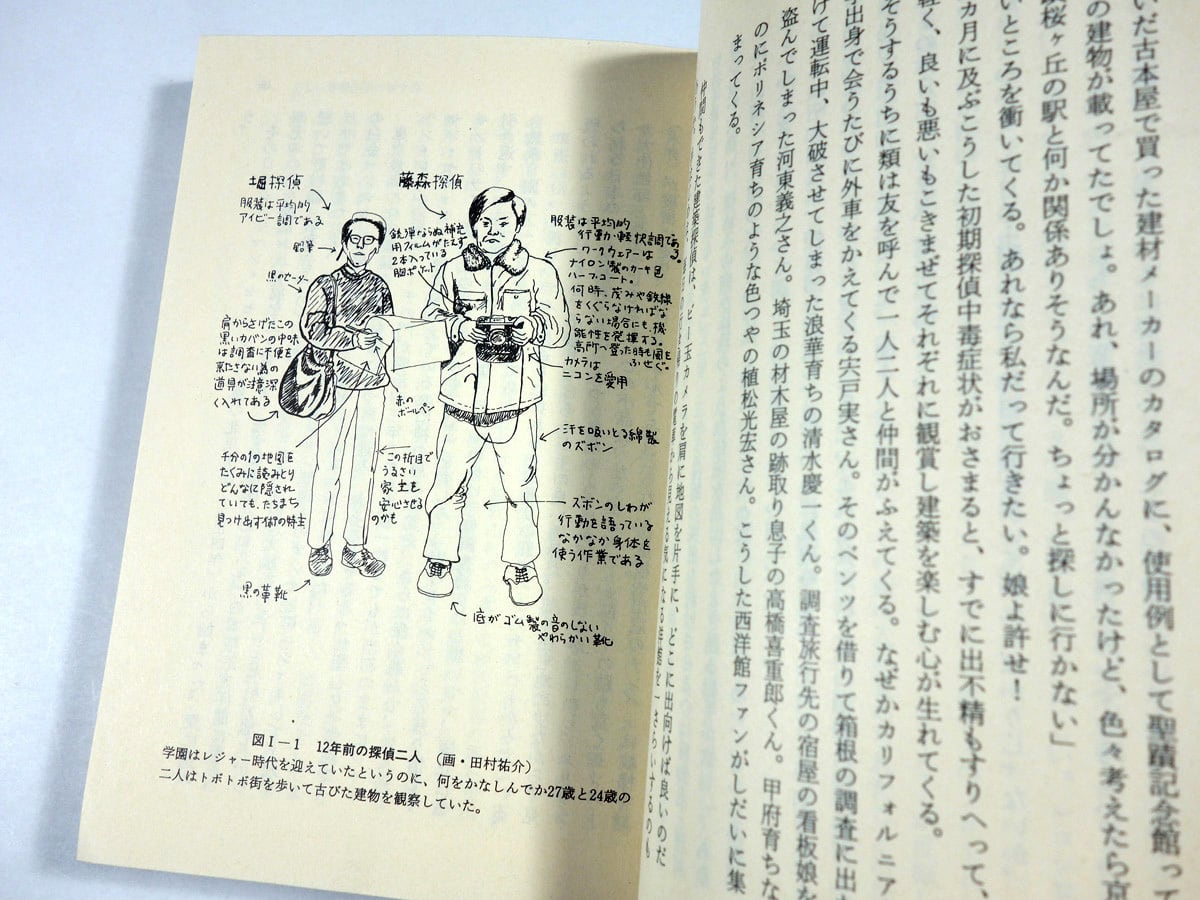 いだ古本屋で買った建材メーカーのカタログに、使用例として聖蹟記念館って
の建物が載ってたでしょ。あれ、場所が分かんなかったけど、色々考えたら京
桜ヶ丘の駅と何か関係ありそうなんだ。ちょっと探しに行かない」
いところを衝いてくる。あれなら私だって行きたい。娘よ許せ！
カ月に及ぶこうした初期探偵中毒症状がおさまると、すでに出不精もすりへって、
軽く、良いも悪いもこきまぜてそれぞれに観賞し建築を楽しむ心が生れてくる。
そうするうちに類は友を呼んで一人二人と仲間がふえてくる。なぜかカリフォルニア
出身で会うたびに外車をかえてくる宍戸実さん。そのベンツを借りて箱根の調査に出
けて運転中、大破させてしまった浪華育ちの清水慶一くん。調査旅行先の宿屋の看板娘を
盗んでしまった河東義之さん。埼玉の材木屋の跡取り息子の高橋喜重郎くん。甲府育ちな
のにポリネシア育ちのような色つやの植松光宏さん。こうした西洋館ファンがしだいに集
まってくる。
仲間もできた建築探偵は、
カメラを肩に地図を片手に、どこに出向けば良いのだ
堀探偵
服装は平均的
アイビー調である
鉛筆
黒のセーター
肩からさげたこの
黒いカバンの中味
は調査に不便を
来たさない為の
道具が注意深
く入れてある
千分の1の地図を
たくみに読みとり
どんなに隠され
ていても、たちまち
見つけ出す術の持主
黒の革靴
赤の
ボールペン
この折目で
うるさい
家主を
安心させる
のかも
藤森探偵
銃弾ならぬ補充
用フィルムがたえず
2本入っている
胸ポケット
服装は平均的
行動・軽快調である。
ワークウェアーは
ナイロン製のカーキ色
ハーフコート。
何時、茂みや鉄線
をくぐらなければな
らない場合にも、機
能性を発揮する。
高所へ登った時も風を
ふせぐ。
カメラは
ニコンを愛用
汗を吸いとる綿製
のズボン
ズボンのしわが
行動を語っている
なかなか身体を
使う作業である
底がゴム製の音のしない
やわらかい靴
図I－1　12年前の探偵二人　（画・田村祐介）
学園はレジャー時代を迎えていたというのに、何をかなしんでか27歳と24歳の
二人はトボトボ街を歩いて古びた建物を観察していた。